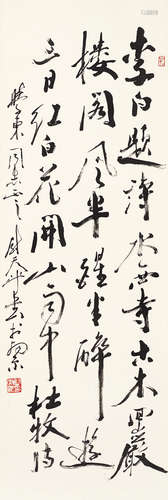 李白題詩水西寺古木回巖
樓閣風半醒半醉遊
三日紅白花開山雨中杜牧詩
東同志正之